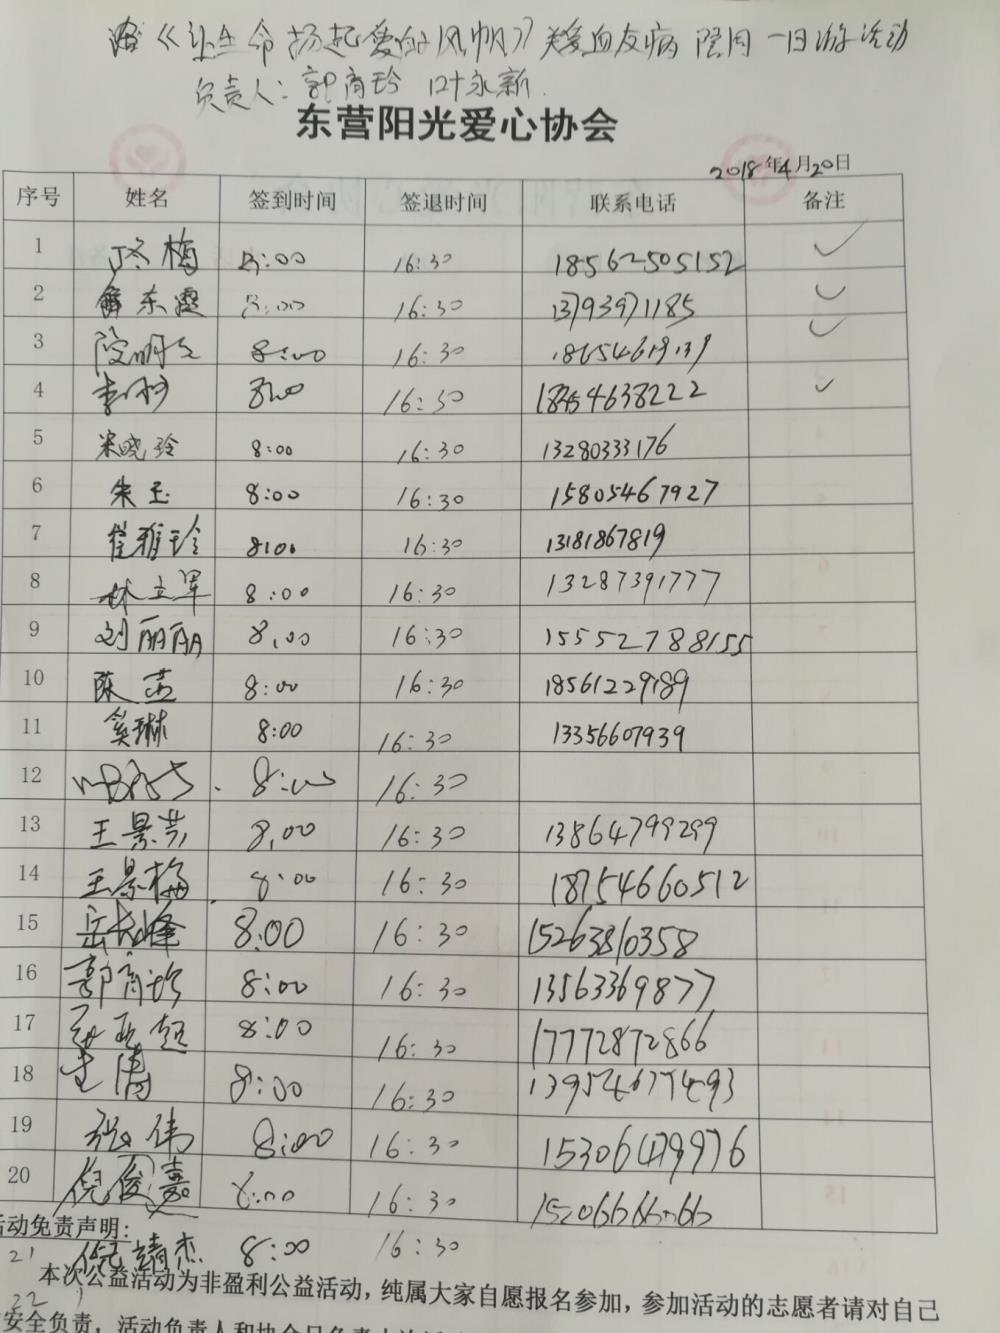 《让生命扬起爱的风帆》关爱血友病 一日游活动
负责人: 郭商玲 叶永新
东营阳光爱心协会
2018年4月20日
序号 姓名 签到时间 签退时间 联系电话 备注
1 梅 8:00 16:30 18562505152 ✓
2 薛东霞 8:00 16:30 13793971185 ✓
3 8:00 16:30 ✓
4 8:00 16:30 4638222 ✓
5 宋晓玲 8:00 16:30 13280333176
6 朱玉 8:00 16:30 15805467927
7 崔雅玲 8:00 16:30 13181867819
8 林立军 8:00 16:30 13287391777
9 刘丽丽 8:00 16:30 15552788155
10 陈 8:00 16:30 18561229189
11 奚琳 8:00 16:30 13356607939
12 8:00 16:30
13 王景芳 8:00 16:30 13864799299
14 王景梅 8:00 16:30 18754660512
15 岳 峰 8:00 16:30 15263810358
16 郭商玲 8:00 16:30 13563369877
17 超 8:00 16:30 17772872866
18 8:00 16:30
19 张伟 8:00 16:30
20 倪俊嘉 8:00 16:30
活动免责声明:
21 倪靖杰 8:00 16:30
本次公益活动为非盈利公益活动，纯属大家自愿报名参加，参加活动的志愿者请对自己
22
安全负责，活动负责人和协会